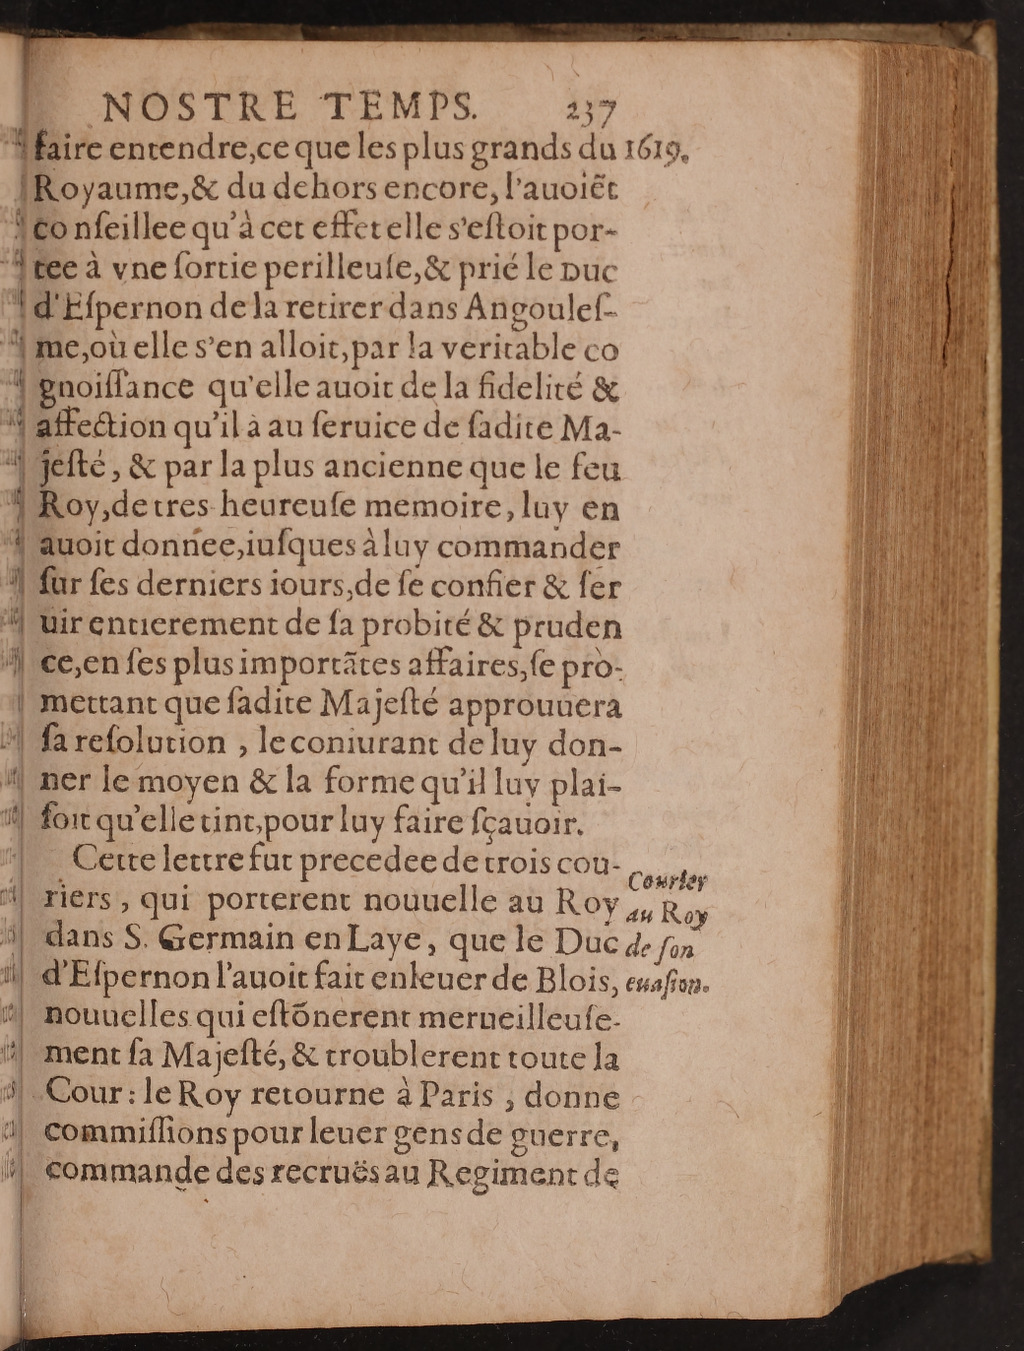 NOSTRE TEMPS. 237
faire entendre,ce que les plus grands du 1619.
Royaume,& du dehors encore, l'auoiẽt
co nſeillee qu'à cet effet elle s'eſtoit por-
tee à vne ſortie perilleuſe,& prié le Duc
d'Eſpernon de la retirer dans Angouleſ-
me,où elle s'en alloit,par la veritable co
gnoiſſance qu'elle auoit de la fidelité &
affection qu'il à au ſeruice de ſadite Ma-
jeſté, & par la plus ancienne que le feu
Roy,de tres heureuſe memoire, luy en
auoit donnee,iuſques à luy commander
ſur ſes derniers iours,de ſe confier & ſer
uir entierement de ſa probité & pruden
ce,en ſes plus importãtes affaires,ſe pro-
mettant que ſadite Majeſté approuuera
ſa reſolution , le coniurant de luy don-
ner le moyen & la forme qu'il luy plai-
ſoit qu'elle tint,pour luy faire ſçauoir.
Cette lettre fut precedee de trois cou-
riers, qui porterent nouuelle au Roy
dans S. Germain en Laye, que le Duc
d'Eſpernon l'auoit fait enleuer de Blois,
nouuelles qui eſtõnerent merueilleuſe-
ment ſa Majeſté, & troublerent toute la
Cour: le Roy retourne à Paris , donne
commiſſions pour leuer gens de guerre,
commande des recruës au Regiment de
Courier
au Roy
de ſon
euaſion.